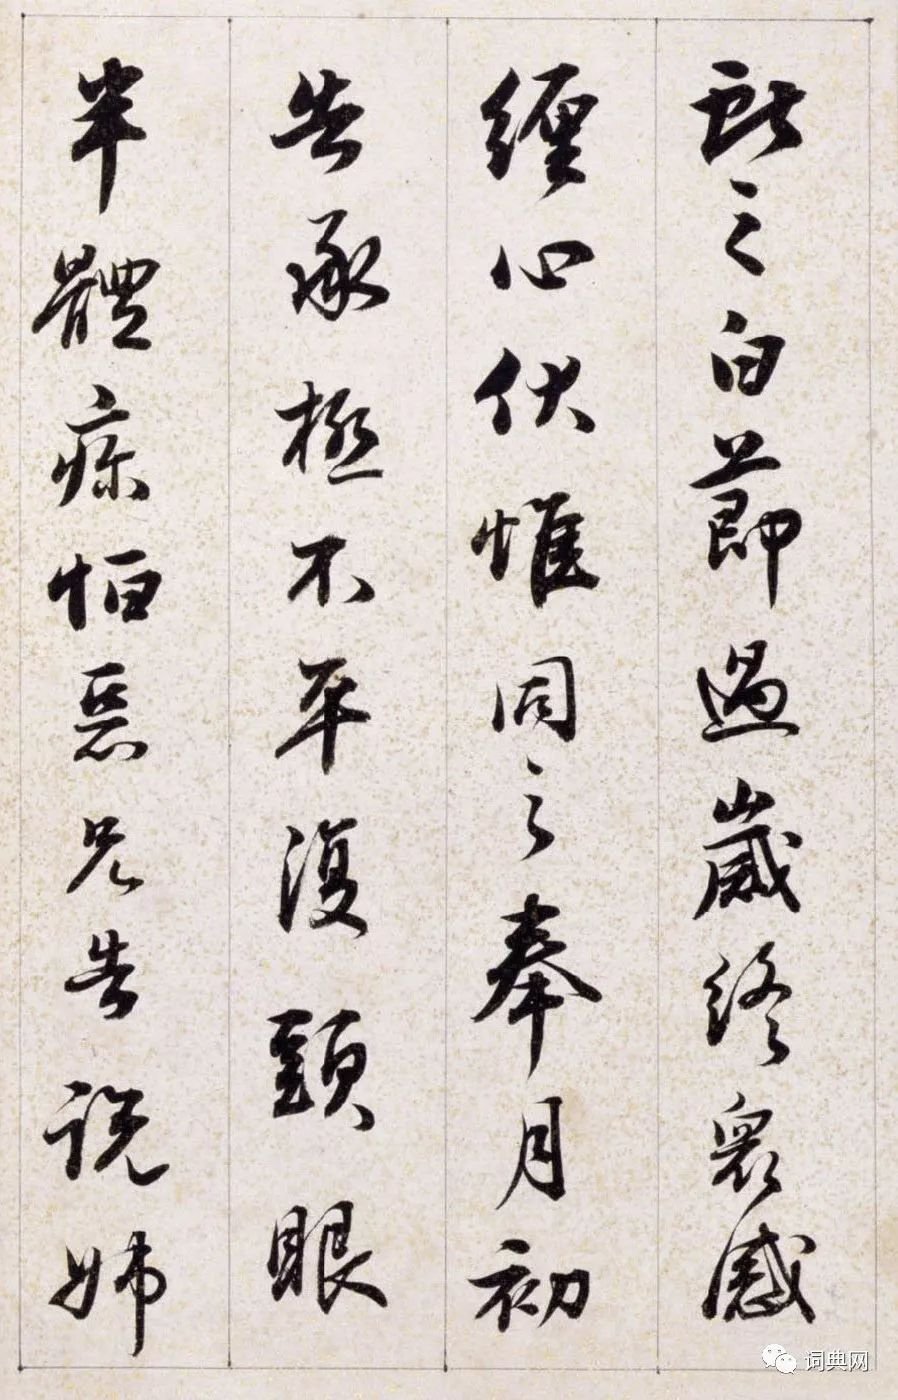 獻之白節過歲終眾感
纏心伏惟同之奉月初
告承極不平復頭眼
半體疼怕惡兄告說姊
词典网